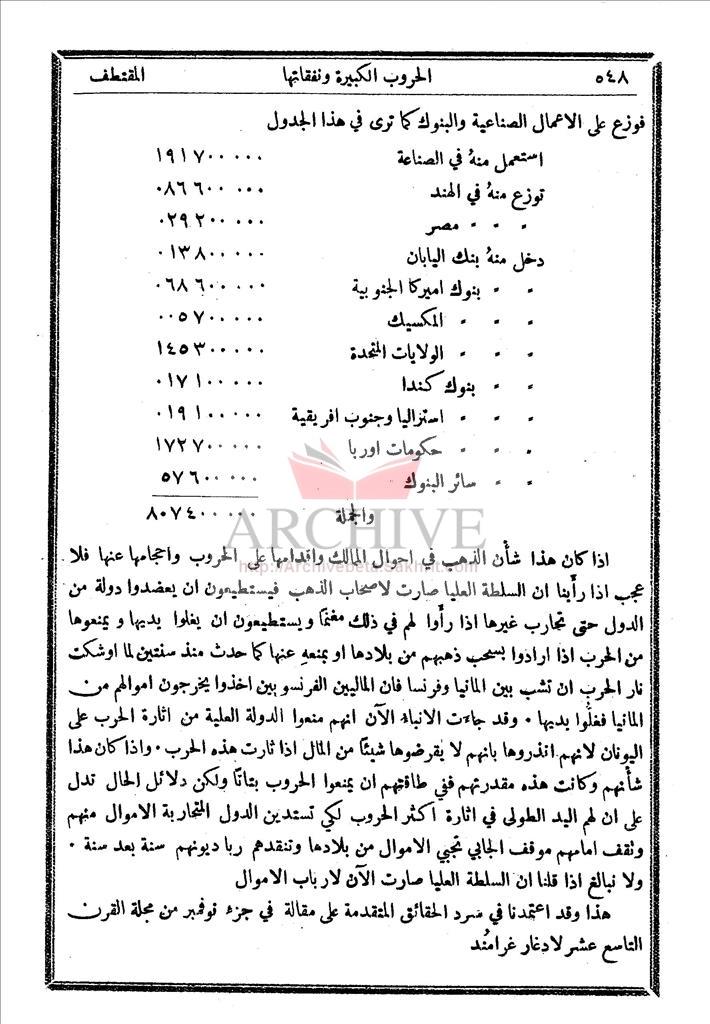 ٥٤٨ الحروب الكبيرة ونفقاتها المقتطف
فوزع على الاعمال الصناعية والبنوك كما ترى في هذا الجدول
استعمل منهُ في الصناعة ١٩١٧٠٠٠٠٠
توزع منهُ في الهند ٠٨٦٦٠٠٠٠٠
" " " مصر ٠٢٩٢٠٠٠٠٠
دخل منهُ بنك اليابان ٠١٣٨٠٠٠٠٠
" " بنوك اميركا الجنوبية ٠٦٨٦٠٠٠٠٠
" " " المكسيك ٠٠٥٧٠٠٠٠٠
" " " الولايات المتحدة ١٤٥٣٠٠٠٠٠
" " بنوك كندا ٠١٧١٠٠٠٠٠
" " " استراليا وجنوب افريقية ٠١٩١٠٠٠٠٠
" " " حكومات اوربا ١٧٢٧٠٠٠٠٠
" " سائر البنوك ٥٧٦٠٠٠٠٠
والجملة ٨٠٧٤٠٠٠٠٠
ARCHIVE
http://Archivebeta.Sakhrit.com
اذا كان هذا شأْن الذهب في احوال الممالك واقدامها على الحروب واحجامها عنها فلا
عجب اذا رأَينا ان السلطة العليا صارت لاصحاب الذهب فيستطيعون ان يعضدوا دولة من
الدول حتى تحارب غيرها اذا رأَوا لهم في ذلك مغنمًا ويستطيعون ان يغلوا يديها ويمنعوها
من الحرب اذا ارادوا بسحب ذهبهم من بلادها او بمنعهِ عنها كما حدث منذ سنتين لما اوشكت
نار الحرب ان تشب بين المانيا وفرنسا فان الماليين الفرنسويين اخذوا يخرجون اموالهم من
المانيا فغلُّوا يديها . وقد جاءت الانباء الآن انهم منعوا الدولة العلية من اثارة الحرب على
اليونان لانهم انذروها بانهم لا يقرضوها شيئًا من المال اذا ثارت هذه الحرب . واذا كان هذا
شأْنهم وكانت هذه مقدرتهم ففي طاقتهم ان يمنعوا الحروب بتاتًا ولكن دلائل الحال تدل
على ان لهم اليد الطولى في اثارة اكثر الحروب لكي تستدين الدول المتحاربة الاموال منهم
وتقف امامهم موقف الجابي تجبي الاموال من بلادها وتنقدهم ربا ديونهم سنة بعد سنة .
ولا نبالغ اذا قلنا ان السلطة العليا صارت الآن لارباب الاموال
هذا وقد اعتمدنا في سرد الحقائق المتقدمة على مقالة في جزء نوفمبر من مجلة القرن
التاسع عشر لادغار غرامُند